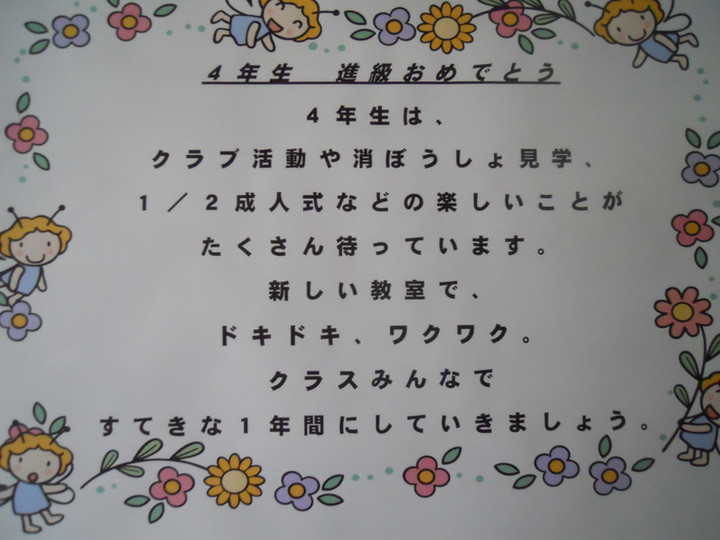 4年生　進級おめでとう
4年生は、
クラブ活動や消ぼうしょ見学、
1／2成人式などの楽しいことが
たくさん待っています。
新しい教室で、
ドキドキ、ワクワク。
クラスみんなで
すてきな1年間にしていきましょう。